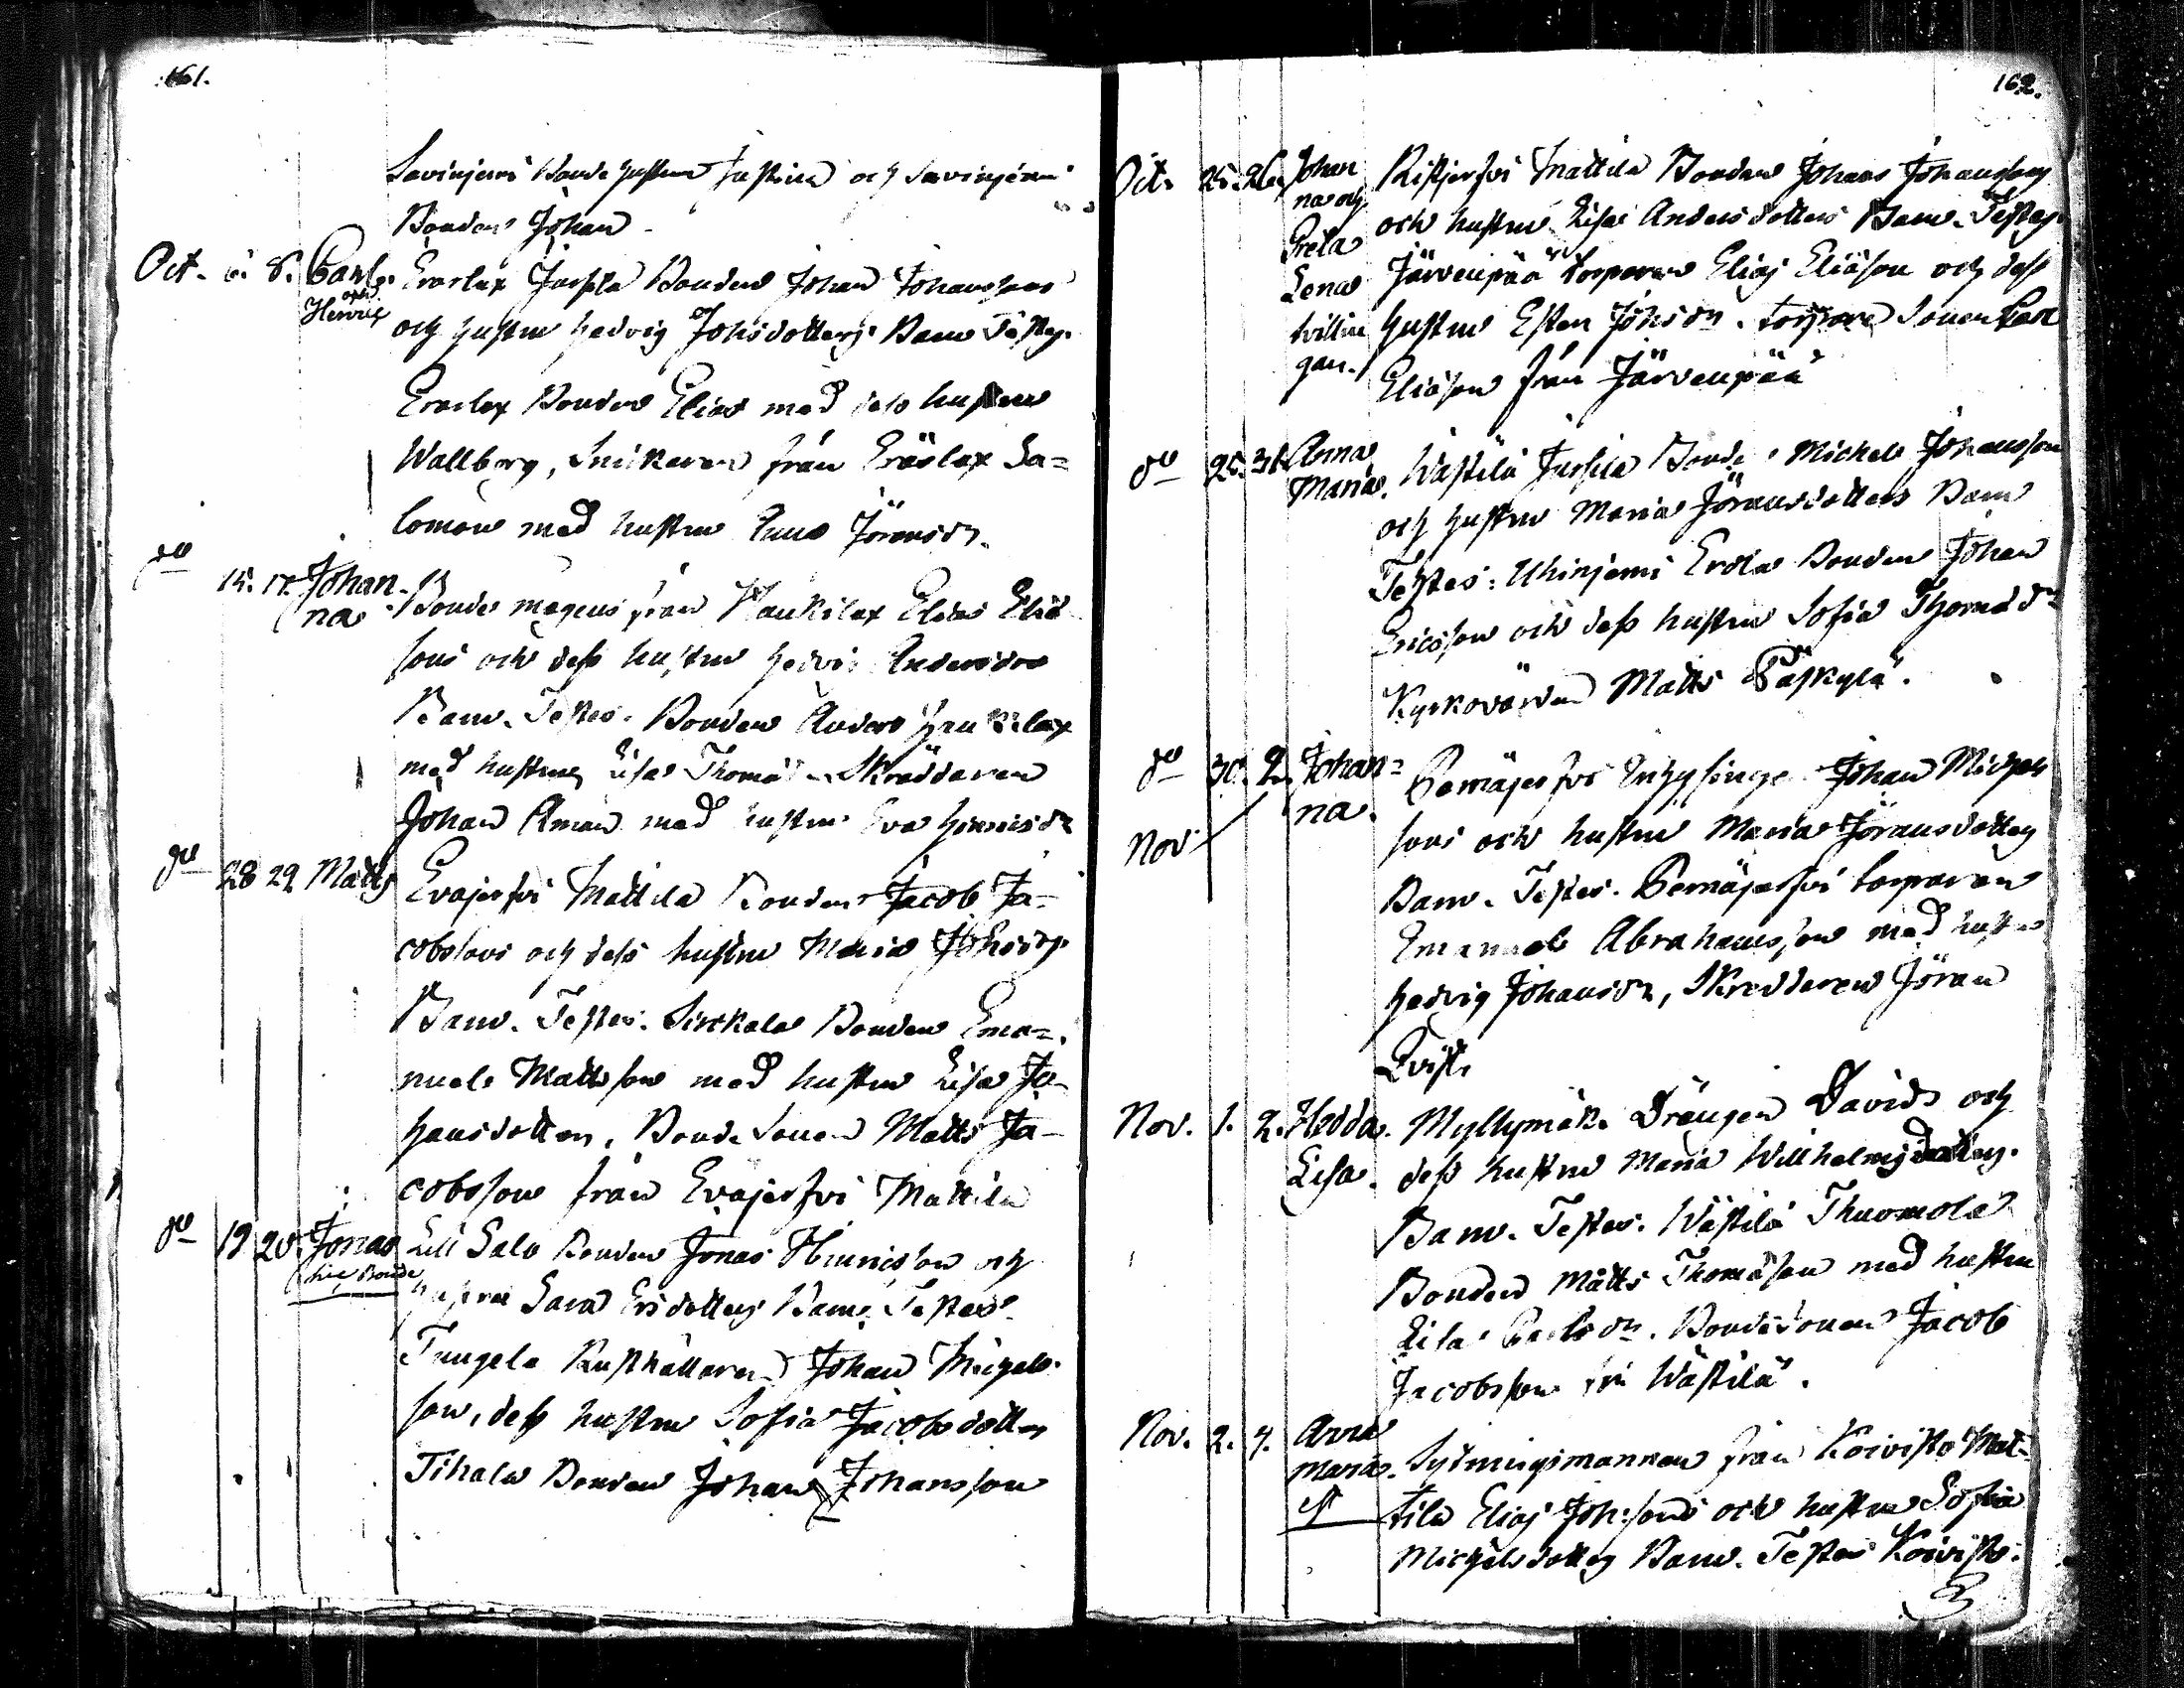 161.
Savinjemi Bonde hustrun Justina och Savinjemi
Bonden Johan
Oct. 6. 8. Carl Eraslax Jussila Bonden Johan Johanssons
och Henric
och hustrun Hedvig Johsdotters Barn Testes.
Eraslax Bonden Elias med dess hustru
Wallborg, Snickaren från Eräslax Sa=
lomon med hustru Anna Jöransdr.
do 15. 17. Johan-
na Bonde mågens från Haukilax Elias Elias
sons och dess hustru Hedvig Andersdrs
Barn. Testes. Bonden Anders Haukilax
med hustru Lisa Thomasdr Skräddaren
Johan Aman med hustru Eva Henricsdr
do 28 29 Matts Evajerfvi Mattila Bonden Jacob Ja-
cobssons och dess hustru Maria Johsdrs
Barn. Testes. Sirckala Bonden Ema=
nuel Mattsson med hustru Lisa Jo-
hansdotter, Bonde Sonen Matts Ja-
cobsson från Evajerfvi Mattila
do 19 20. Jonas Lill Salo Bonden Jonas Hinricsson och
hustru Sara Ersdotters Barn. Testes.
Tungela Rusthållaren Johan Michels
son, dess hustru Sofia Jacobsdotter
Tihala Bonden Johan Johansson
162.
Oct. 25. 26. Johan Ristjerfvi Mattila Bonden Johans Johanssons
na och och hustru Lisa Andersdotters Barn. Testes.
Greta Järvenpää Torparen Elias Eliasson och dess
Lena hustru Ester Johsdr. torpare Sonen Carl
tvillin
gar. Eliasson från Järvenpää
do 25. 31. Anna Wästilä Jussila Bonde Michel Johansson
Maria. och hustru Maria Jöransdotters Barn
Testes: Uhinjemi Erola Bonden Johan
Ericsson och dess hustru Sofia Thomasdr
Kyrkovärden Matts Päskylä.
do 30. 2. Johan= Pemäjerfvi Inhysinge Johan Michels
na.
Nov sons och hustru Maria Jöransdotters
Barn. Testes. Pemäjerfvi torparen
Emanuel Abrahamsson med hustru
Hedvig Johansdr, Skreddaren Jöran
Qvist
Nov. 1. 2. Hedda Myllymäki Drängen Davids och
Lisa. dess hustru Maria Willhelmsdotters.
Barn. Testes. Wästilä Thuomola
Bonden Matts Thomasson med hustru
Lisa Carlsdr. Bondesonen Jacob
Jacobsson fr. Wästilä.
Nov. 2. 4. Anna
Maria. Sytningsmannen från Koivisto Mat-
tila Elias Johssons och hustru Sofia
Michelsdotters Barn. Testes Koivisto.